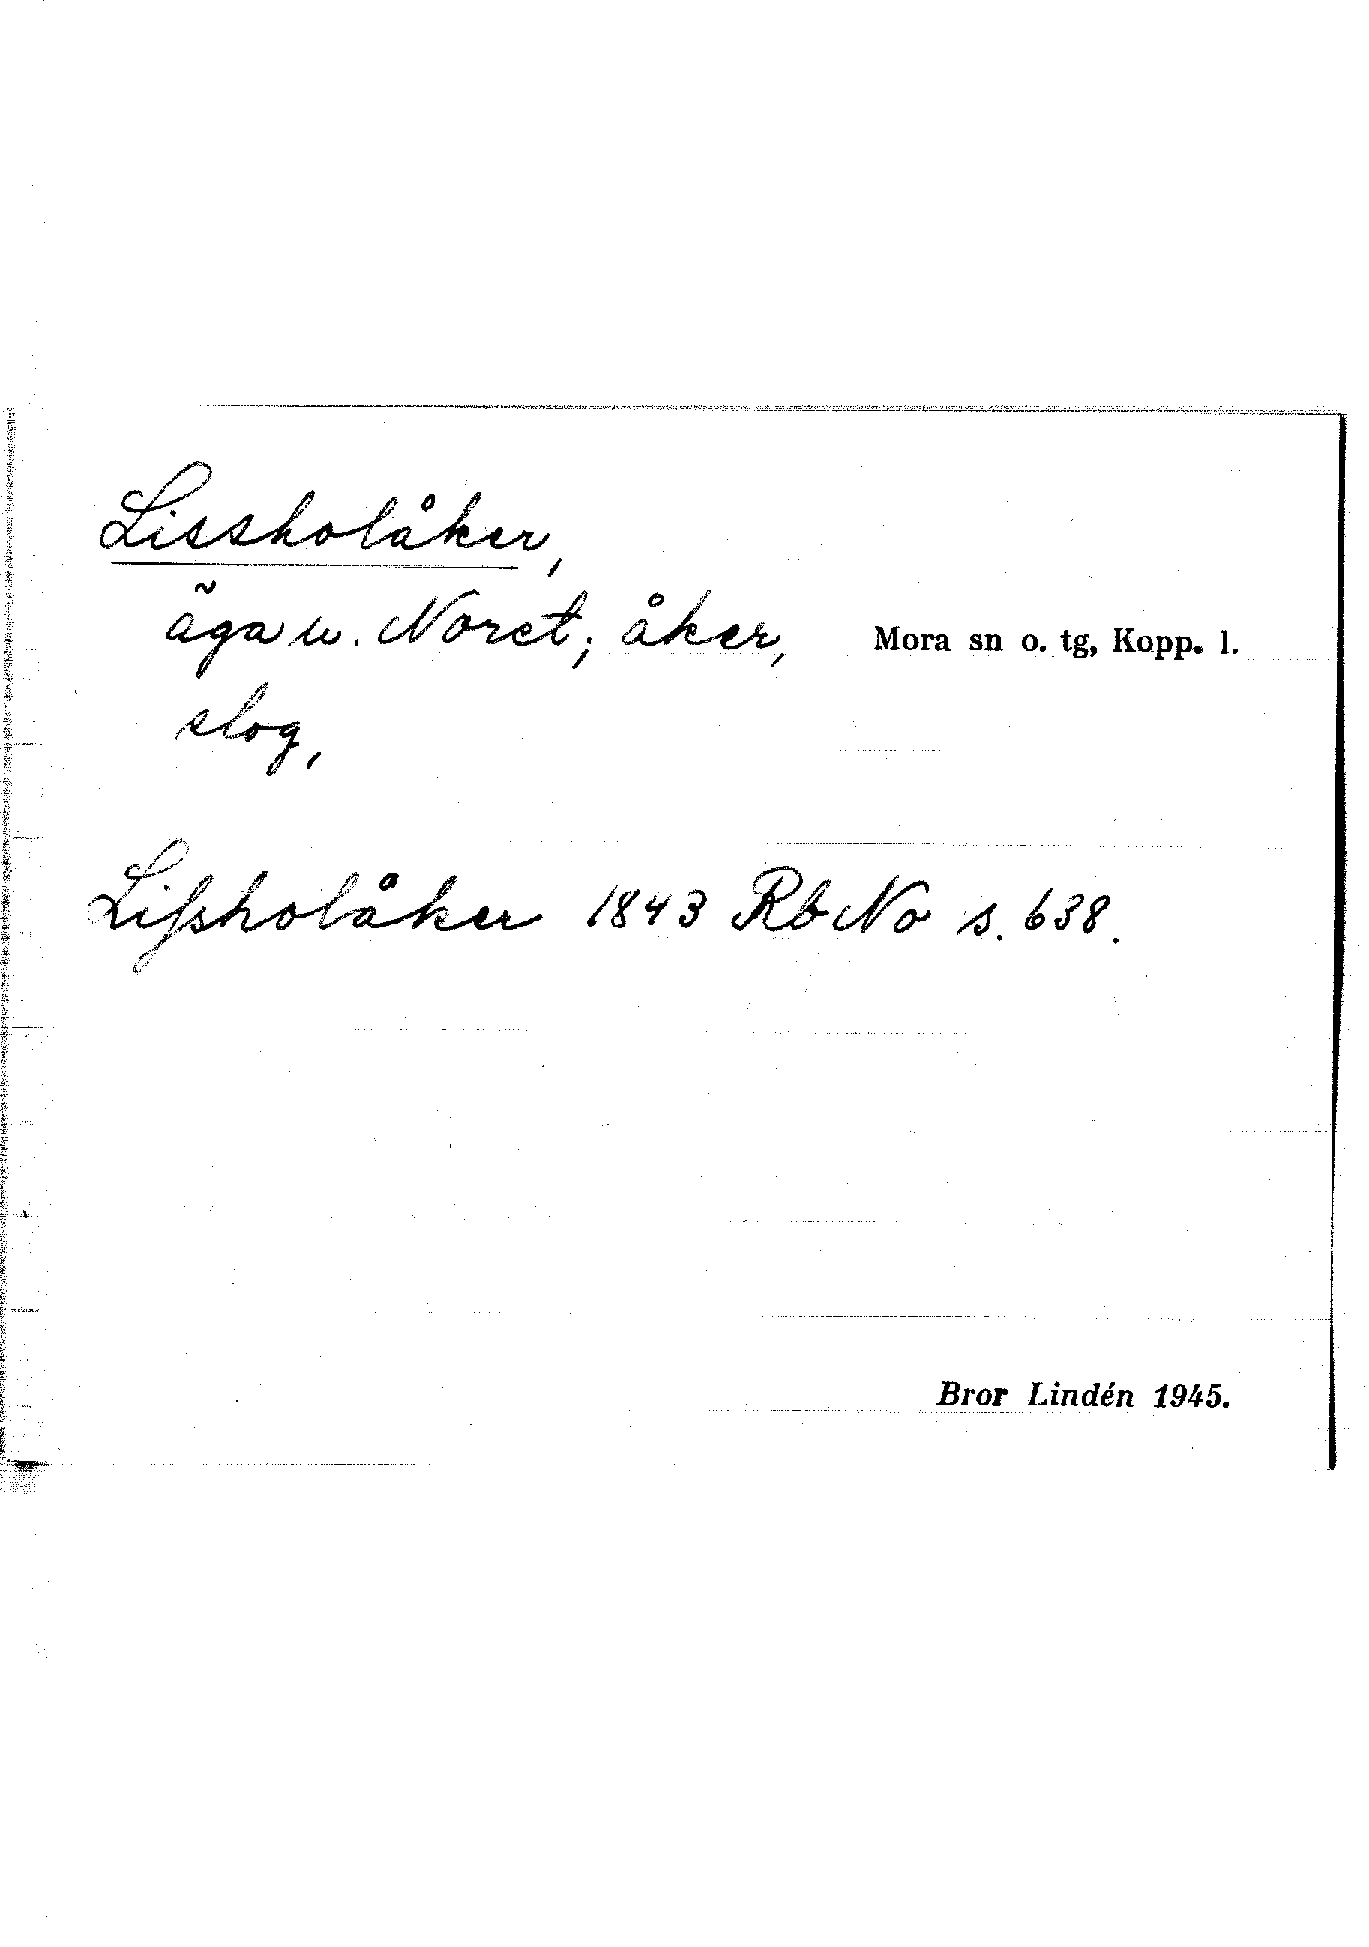 Lissholåker,
äga u. Noret; åker,
Mora sn o. tg, Kopp. l.
slog,
Liſsholåker 1843 Rb No s. 638.
Bror Lindén 1945.